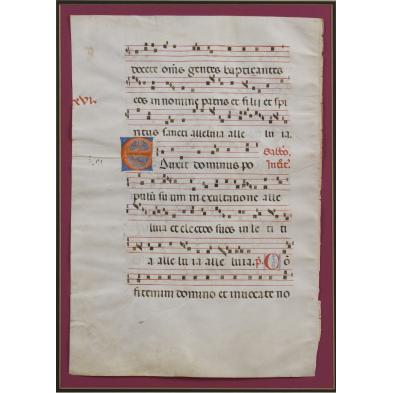 docete om̄s gentes baptizantes
xvi.
eos in nomine patris et filii et spi
ritus sancti alleluia alle lu ia.
Sabbo.
Eduxit dominus po Introi.
pulū su um in exultatione alle
luia et electos suos in le ti ti
a alle lu ia alle luia. p̄. Cō
fitemini domino et invocate no